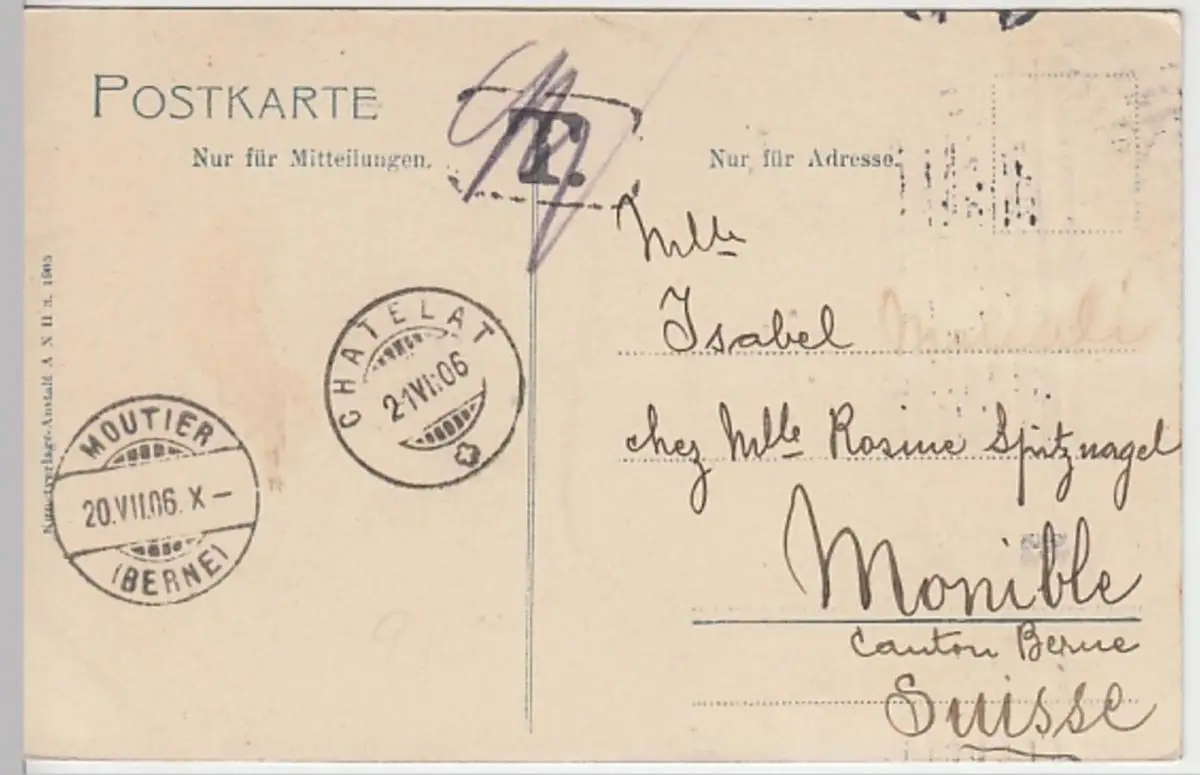 POSTKARTE
Nur für Mitteilungen.
T.
Nur für Adresse.
Mlle
Isabel
chez Mlle Rosine Spitznagel
Monible
Canton Berne
Suisse
CHATELAT
21VII:06
MOUTIER
20.VII.06. X –
(BERNE)
Kunstverlags-Anstalt